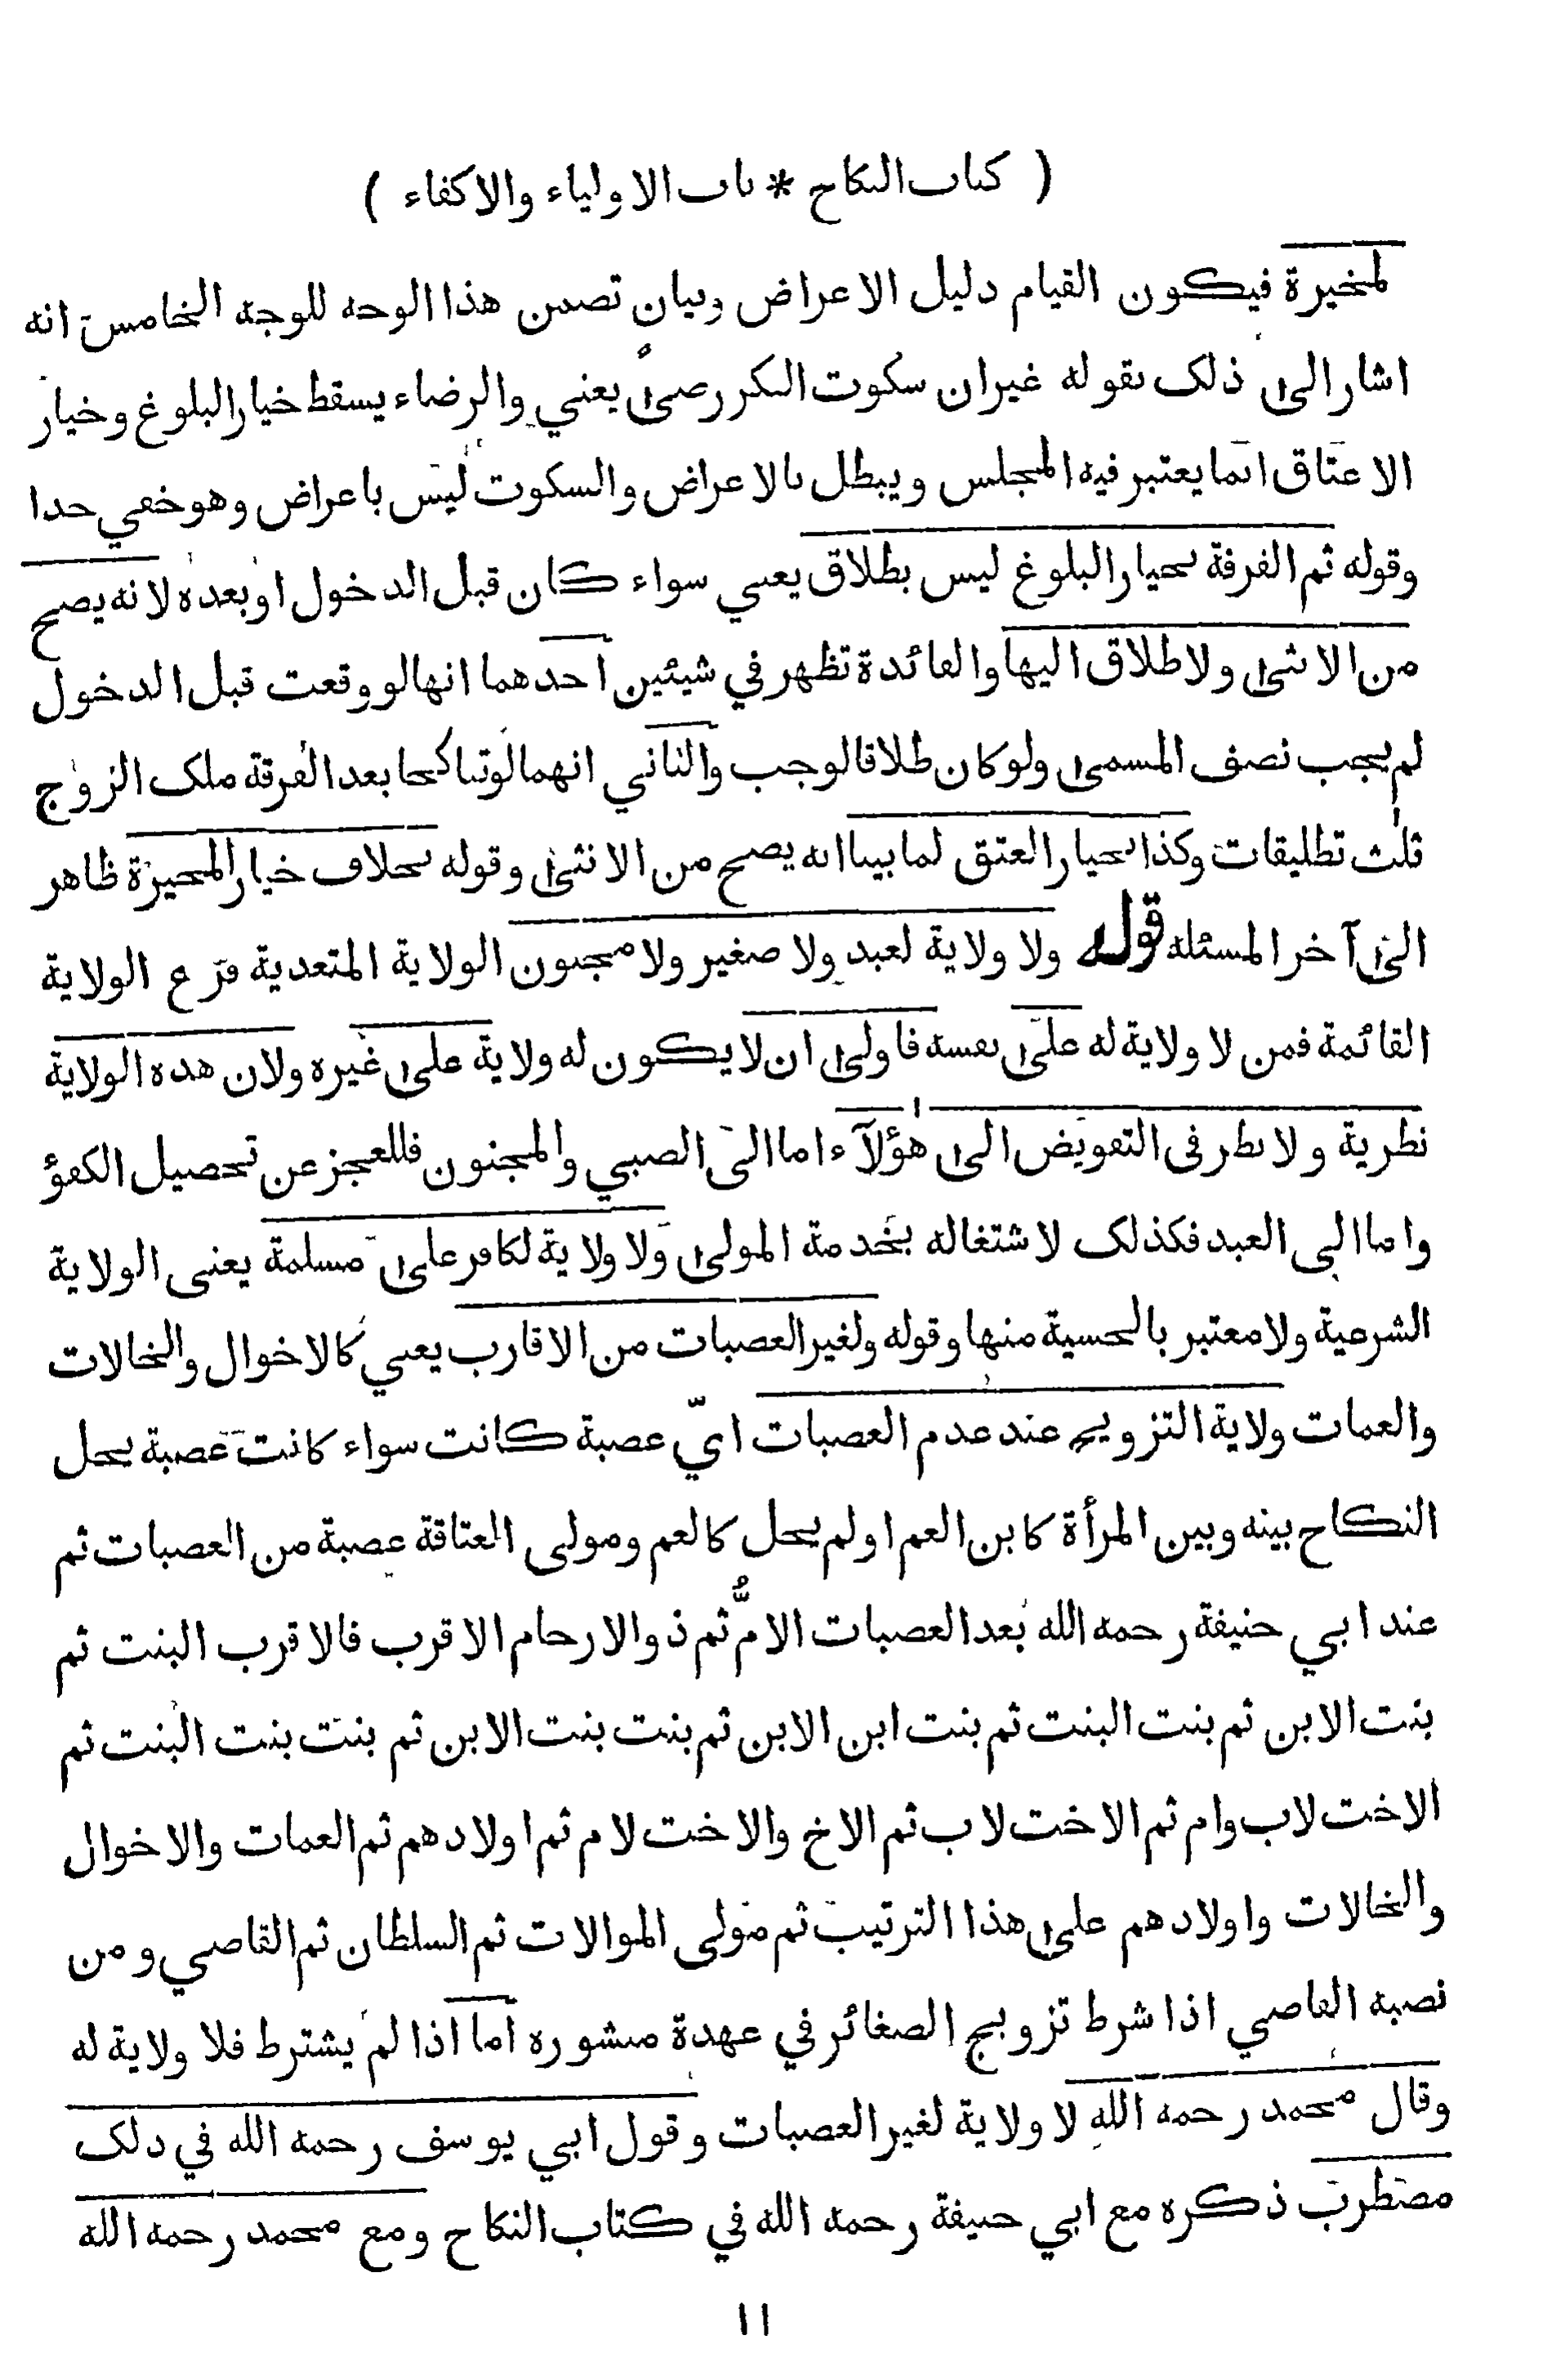 ( كتاب النكاح * باب الاولياء والاكفاء )
المخيرة فيكون القيام دليل الاعراض وبيان تضمن هذا الوجه للوجه الخامس انه
اشار الى ذلك بقوله غير ان سكوت البكر رضى يعني والرضاء يسقط خيار البلوغ وخيار
الاعتاق انما يعتبر فيه المجلس ويبطل بالاعراض والسكوت ليس باعراض وهو خفي جدا
وقوله ثم الفرقة بخيار البلوغ ليس بطلاق يعني سواء كان قبل الدخول او بعده لانه يصح
من الانثى ولا طلاق اليها والفائدة تظهر في شيئين احدهما انها لو وقعت قبل الدخول
لم يجب نصف المسمى ولو كان طلاقا لوجب والثاني انهما لو تناكحا بعد الفرقة ملك الزوج
ثلث تطليقات وكذا بخيار العتق لما بينا انه يصح من الانثى وقوله بخلاف خيار المخيرة ظاهر
الى آخر المسئله قوله ولا ولاية لعبد ولا صغير ولا مجنون الولاية المتعدية فرع الولاية
القائمة فمن لا ولاية له على نفسه فاولى ان لا يكون له ولاية على غيره ولان هذه الولاية
نظرية ولا نظر في التفويض الى هؤلآء اما الى الصبي والمجنون فللعجز عن تحصيل الكفؤ
واما الى العبد فكذلك لاشتغاله بخدمة المولى ولا ولاية لكافر على مسلمة يعني الولاية
الشرعية ولا معتبر بالحسية منها وقوله ولغير العصبات من الاقارب يعني كالاخوال والخالات
والعمات ولاية التزويج عند عدم العصبات ايّ عصبة كانت سواء كانت عصبة يحل
النكاح بينه وبين المرأة كابن العم او لم يحل كالعم ومولى العتاقة عصبة من العصبات ثم
عند ابي حنيفة رحمه الله بعد العصبات الامُّ ثم ذوالارحام الاقرب فالاقرب البنت ثم
بنت الابن ثم بنت البنت ثم بنت ابن الابن ثم بنت بنت الابن ثم بنت بنت البنت ثم
الاخت لاب وام ثم الاخت لاب ثم الاخ والاخت لام ثم اولادهم ثم العمات والاخوال
والخالات واولادهم على هذا الترتيب ثم مولى الموالات ثم السلطان ثم القاضي ومن
نصبه القاضي اذا شرط تزويج الصغائر في عهدة منشوره اما اذا لم يشترط فلا ولاية له
وقال محمد رحمه الله لا ولاية لغير العصبات وقول ابي يوسف رحمه الله في ذلك
مضطرب ذكره مع ابي حنيفة رحمه الله في كتاب النكاح ومع محمد رحمه الله
١١